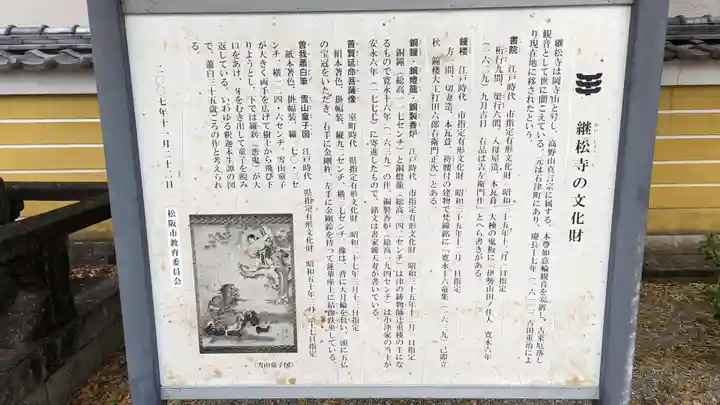 継松寺の文化財
けいしょうじ
継松寺は岡寺山と号し、高野山真言宗に属する。本尊如意輪観音を安置し、古来厄落し
観音として世に聞こえている。元は石津町にあり、慶長十七年(一六一二)古田重治によ
り現在地に移されたという。
書院 江戸時代 市指定有形文化財 昭和三十五年十二月一日指定
桁行九間、梁行六間、入母屋造、本瓦葺、大棟の鬼板に「伊勢山田ノ住人 寛永六年
(一六二九)九月吉日 右品は吉左衛門作」とへら書きがある。
鐘楼 江戸時代 市指定有形文化財 昭和三十五年十二月一日指定
方一間、切妻造、本瓦葺、袴腰付の建物で梵鐘銘に「寛永十六竜集(一六三九)己卯立
秋 鐘楼大工打田六郎右衛門正次」とある。
銅鐘・銅燈籠・銅製香炉 江戸時代 市指定有形文化財 昭和三十五年十二月一日指定
銅鐘(総高一二七センチ)と銅燈籠(総高二四二センチ)は津の鋳物師辻重種の手にな
るもので寛永十六年(一六三九)の作。銅製香炉(総高一九四センチ)は小津家の当主が
安永六年(一七七七)に寄進したもので、銘文は呉家韓天寿が書いている。
普賢延命菩薩像 室町時代 県指定有形文化財 昭和二十七年三月十二日指定
絹本著色、掛幅装、縦九二センチ、横三七センチ。像は、背に大月輪を負い、頭に五仏
の宝冠をいただき、右手に金剛杵、左手に金剛鈴を持って蓮華座上に結跏趺坐している。
曽我蕭白筆 雪山童子図 江戸時代 県指定有形文化財 昭和五十年三月二十七日指定
紙本著色、掛幅装、縦一七〇・三セ
ンチ、横一二四・六センチ。雪山童子
が大きく両手を広げて樹上から飛び下
りようとし、下では羅刹(悪鬼)が大
口をあけ、牙をむき出して童子を睨み
返している。いわゆる釈迦本生譚の図
で、蕭白三十五歳ごろの作と考えられ
二〇〇七年十二月二十二日
松阪市教育委員会
(雪山童子図)